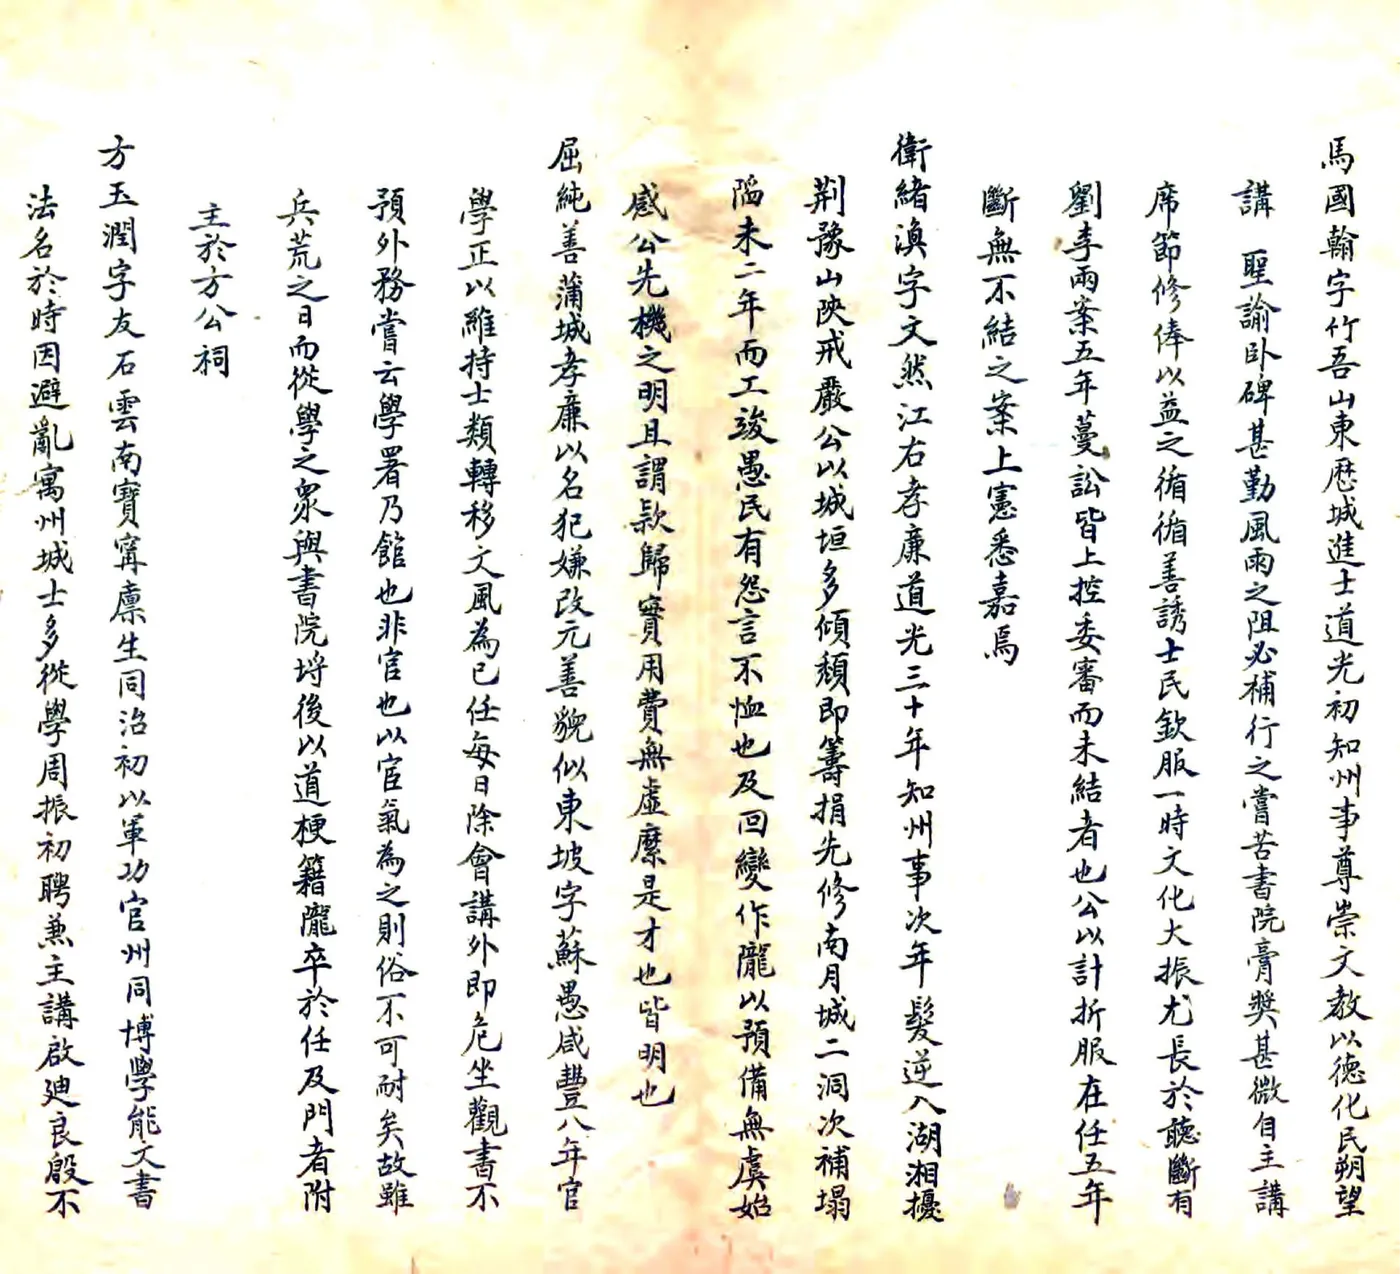 馬國翰字竹吾山東歷城進士道光初知州事尊崇文教以德化民朔望
講 聖諭卧碑甚勤風雨之阻必補行之嘗苦書院膏奬甚微自主講
席節修俸以益之循循善誘士民欽服一時文化大振尤長於聽斷有
劉李兩案五年蔓訟皆上控委審而未結者也公以計折服在任五年
斷無不結之案上憲悉嘉焉
衛緒渙字文然江右孝廉道光三十年知州事次年髮逆入湖湘擾
荆豫山陝戒嚴公以城垣多傾頹即籌捐先修南月城二洞次補塌
陷未二年而工竣愚民有怨言不恤也及回變作隴以預備無虞始
感公先機之明且謂款歸實用費無虛縻是才也皆明也
屈純善蒲城孝廉以名犯嫌改元善貌似東坡字蘇愚咸豐八年官
學正以維持士類轉移文風為己任每日除會講外即危坐觀書不
預外務嘗云學署乃館也非官也以官氣為之則俗不可耐矣故雖
兵荒之日而從學之衆與書院埒後以道梗籍隴卒於任及門者附
主於方公祠
方玉潤字友石雲南寶寗廪生同治初以軍功官州同博學能文書
法名於時因避亂寓州城士多從學周振初聘兼主講啟迪良殷不